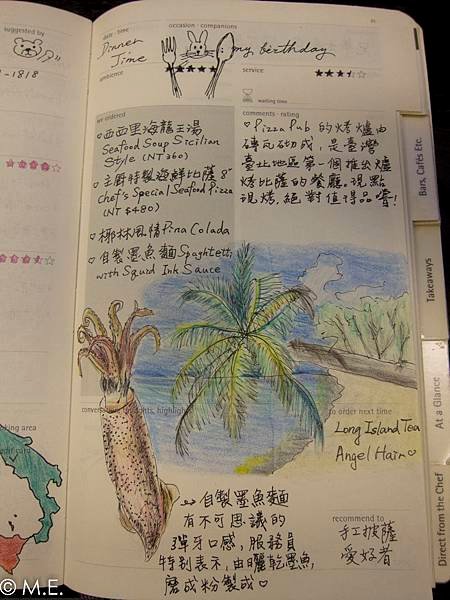 suggested by
-1818
king area
dit card
81
date · time
Dinner
Time
occasion · companions
: my birthday
ambience
service
waiting time
we ordered
♡西西里海龍王湯
Seafood Soup Sicilian
Style (NT360)
♡主厨特製海鮮比薩 8"
Chef's Special Seafood Pizza
(NT $480)
♡椰林風情 Pina Colada
♡自製墨魚麵 Spaghetti
with Squid Ink Sauce
comments · rating
♡Pizza Pub 的烤爐由
磚瓦砌成，是臺灣
臺北地區第一個推出爐
烤比薩的餐廳。現點
現烤，絕對值得品嚐!
to order next time
Long Island Tea
Angel Hair♡
自製墨魚麵
有不可思議的
彈牙口感，服務員
特別表示，由曬乾墨魚，
磨成粉製成♡
recommend to
手工披薩
愛好者
Bars, Cafés Etc.
Takeaways
At a Glance
Direct from the Chef
© M.E.